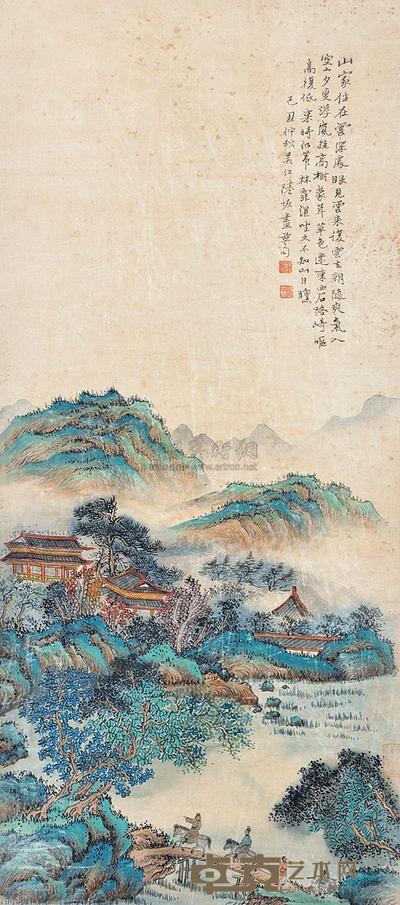 山家住在雲深處眼見雲來復雲去朝隨爽氣入
空山夕逐浮嵐挂高樹蒙茸草色迷東西石路崎嶇
高復低來時衹覺林霏濕坐久不知山日
己丑仲秋吳江陸恢畫並句
雅昌藝術網
www.artron.net
卓克艺术网